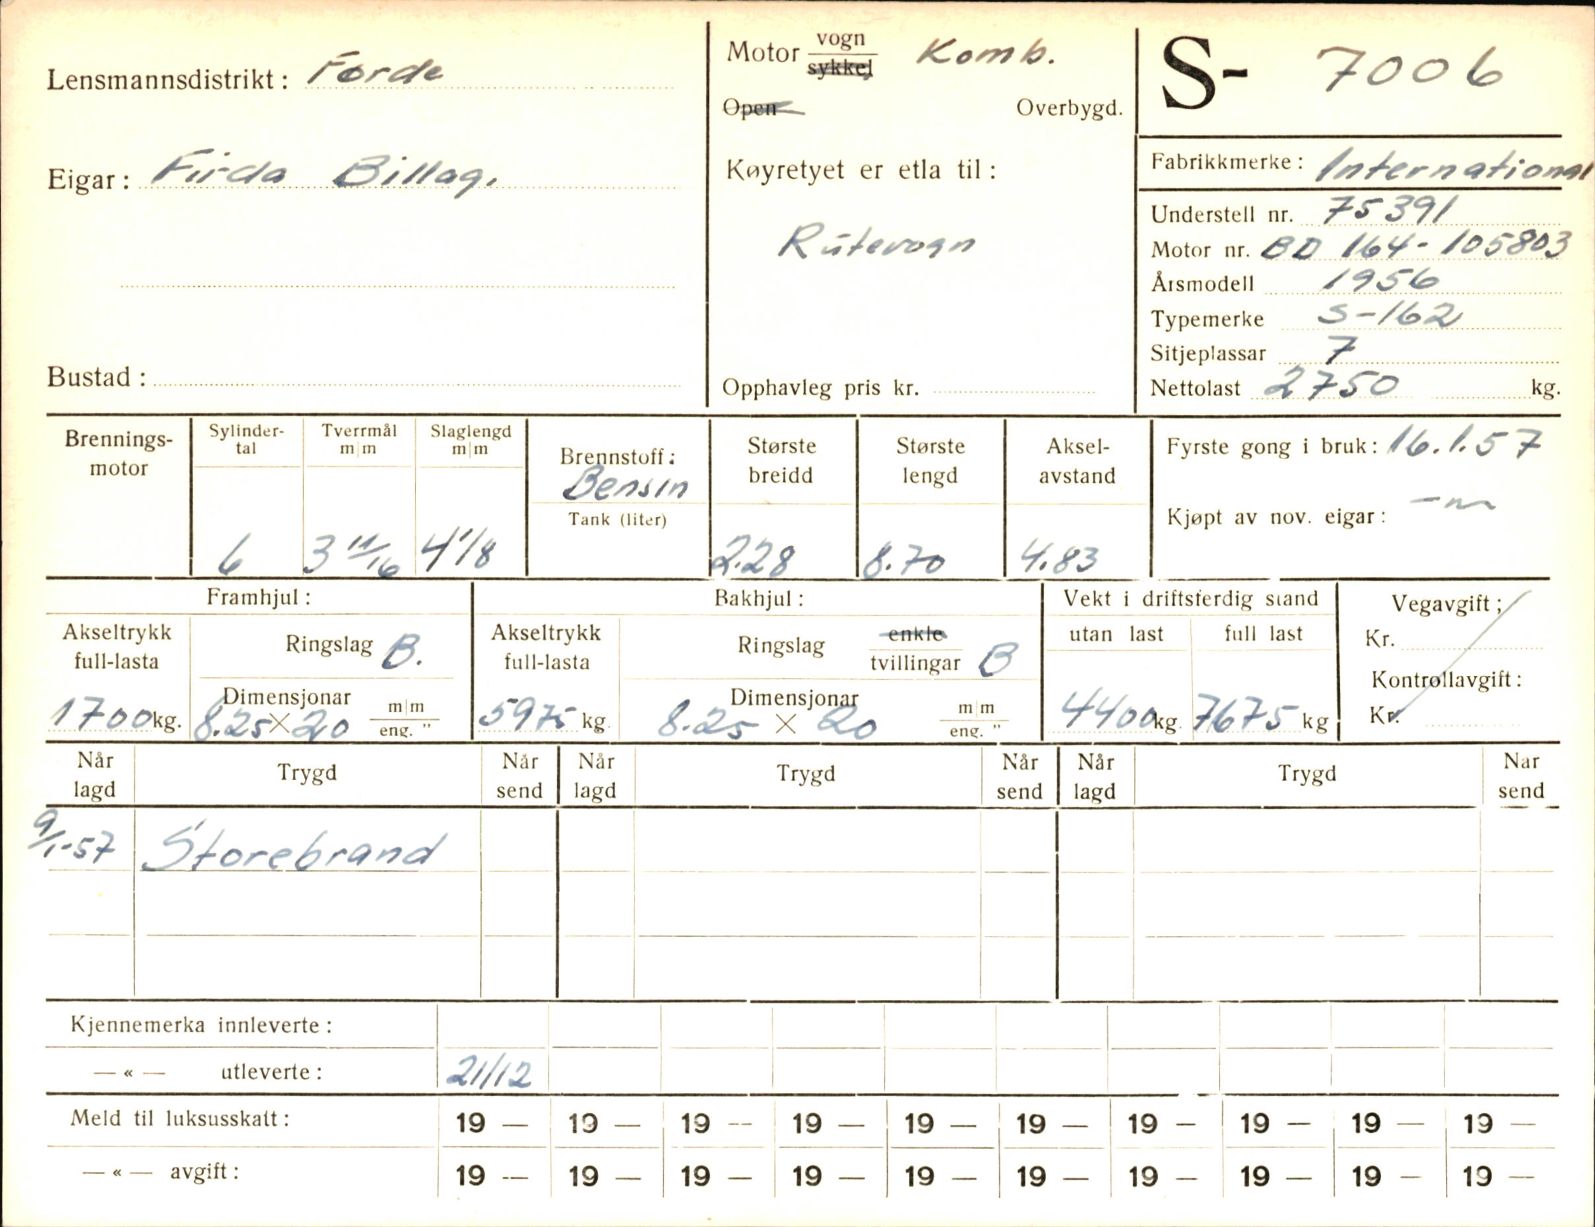 Lensmannsdistrikt: Førde
Motor vogn Komb.
sykkel
S- 7006
Open Overbygd.
Fabrikkmerke: International
Eigar: Firda Billag.
Køyretyet er etla til:
Understell nr. 75391
Rutevogn
Motor nr. BD 164-105803
Årsmodell 1956
Typemerke S-162
Sitjeplassar 7
Bustad:
Opphavleg pris kr.
Nettolast 2750 kg.
Brennings-
motor
Sylinder-
tal
6
Tverrmål
m|m
3 11/16
Slaglengd
m|m
4 1/8
Brennstoff:
Bensin
Tank (liter)
Største
breidd
2.28
Største
lengd
8.70
Aksel-
avstand
4.83
Fyrste gong i bruk: 16.1.57
Kjøpt av nov. eigar: -"-
Framhjul:
Akseltrykk
full-lasta
1700 kg.
Ringslag B.
Dimensjonar m|m
8.25 × 20 eng. "
Bakhjul:
Akseltrykk
full-lasta
5975 kg.
Ringslag enkle
tvillingar B
Dimensjonar m|m
8.25 × 20 eng. "
Vekt i driftsferdig stand
utan last full last
4400 kg. 7675 kg
Vegavgift;
Kr.
Kontrollavgift:
Kr.
Når
lagd Trygd Når
send Når
lagd Trygd Når
send Når
lagd Trygd Når
send
9/1-57 Storebrand
Kjennemerka innleverte:
— « — utleverte: 21/12
Meld til luksusskatt: 19 — 19 — 19 — 19 — 19 — 19 — 19 — 19 — 19 — 19 —
— « — avgift: 19 — 19 — 19 — 19 — 19 — 19 — 19 — 19 — 19 — 19 —